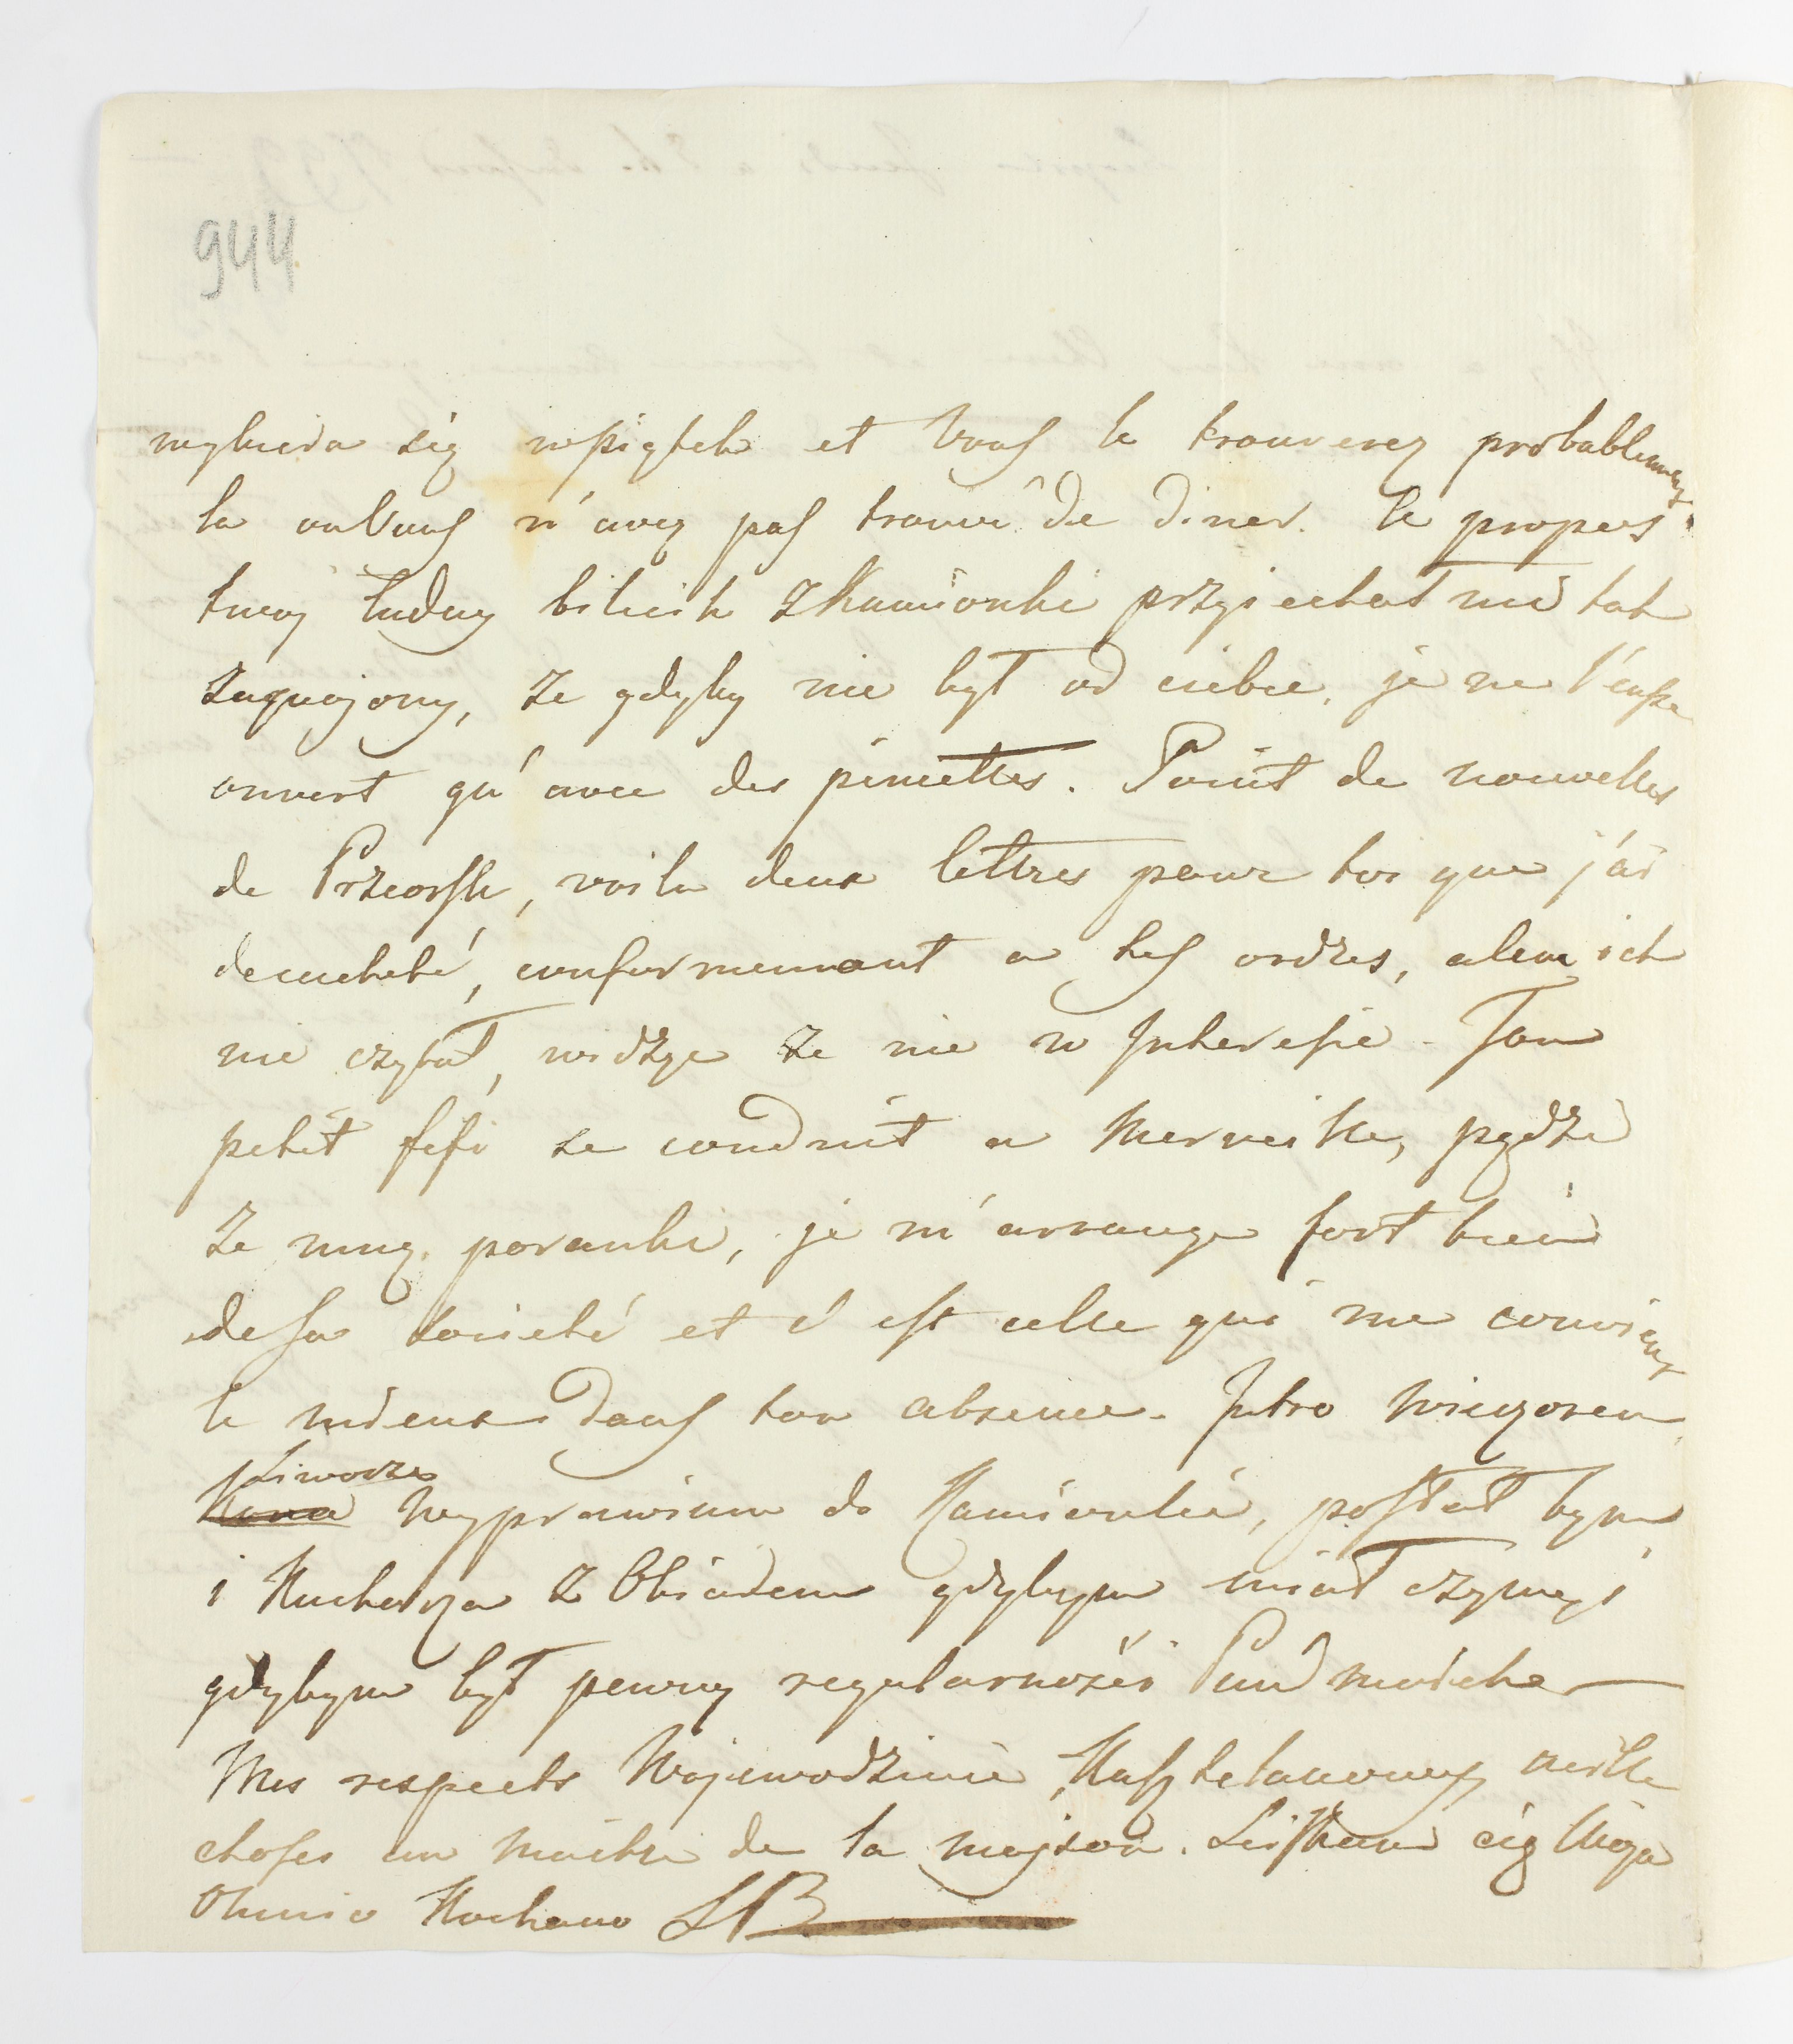 944
wybiera się w piątek et vous le trouverez probablement
la ou Vous n'avez pas trouvé de diner. A propos
twoj ładny bilecik z Kamionki przyiechał mi tak
że gdyby nie był od ciebie, je ne l'eusse
ouvert qu'avec des pincettes. Point de nouvelles
de Przeorsk, voila deux lettres pour toi que j'ai
decacheté, conformement a tes ordres, alem ich
nie czytał, widzę że nie w Interesie. Ton
petit fifi se conduit a merveille, pędzi
ze mną poranki, je m'arrange fort bien
de sa societé et c'est celle qui me convient
le mieux dans ton absence. Jutro wieczorem
Siwosza wyprawiam do Kamionki, posłał bym
i Kucharza z Obiadem gdybym miał czym, i
gdybym był pewny regularności
Mes respects Wojewodzinie, Kasztelanowey mille
choses au maitre de la maison. Sciskam cię Moja
Oluniu Kochana SP